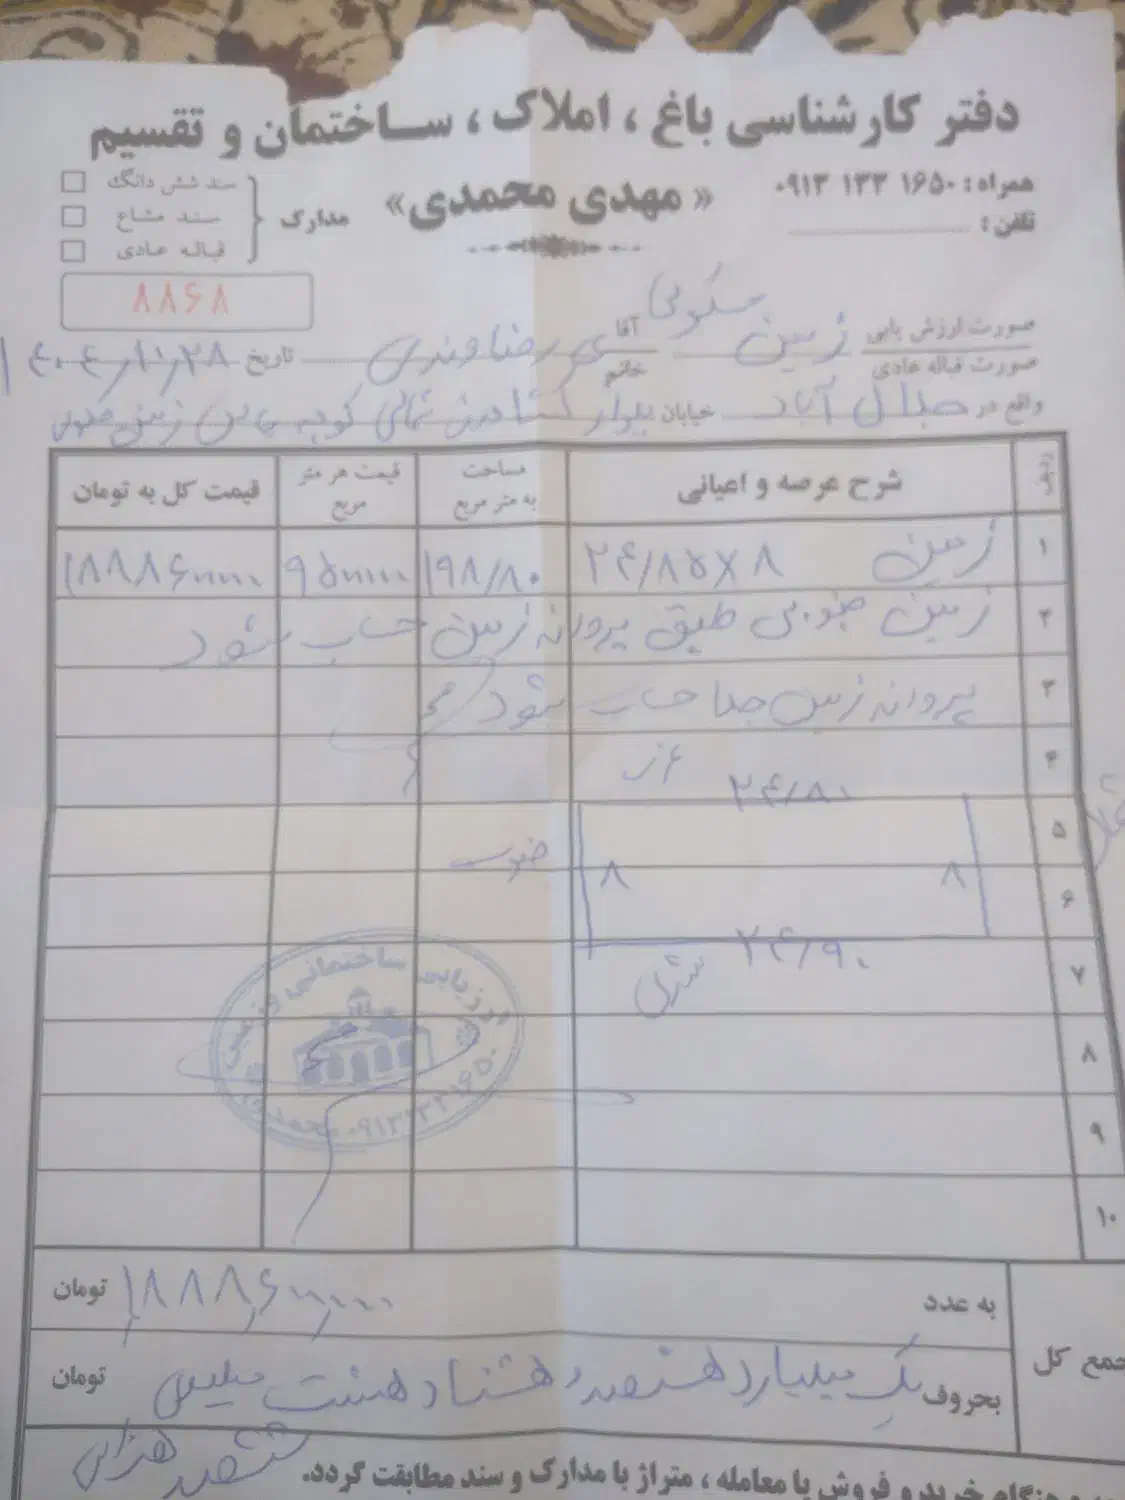 دفتر کارشناسی باغ، املاک، ساختمان و تقسیم
« مهدی محمدی»
همراه: ۰۹۱۳ ۱۳۳ ۱۶۵۰
تلفن:
مدارک
سند شش دانگ
سند مشاع
قباله عادی
۸۸۶۸
صورت ارزش یابی
صورت قباله عادی
زمین مسکونی
آقا
خانم
تاریخ ۱۴۰۴/۱۰/۲۸
واقع در جلال آباد خیابان بلوار کشاورز شمالی کوچه زمین
ردیف شرح عرصه و اعیانی مساحت به متر مربع قیمت هر متر مربع قیمت کل به تومان
۱ زمین ۲۴/۸۵×۸ ۱۹۸/۸۰ ۹۵۰۰۰۰۰ ۱۸۸۸۶۰۰۰۰۰
۲ زمین جنوبی طبق پروانه زمین حساب شود
۳ پروانه زمین جدا حساب شود
۴
۲۴/۸۰
۵
۶ ۸ ۸
جنوب
۲۴/۹۰
۷
۸
۹
۱۰
ارزیابی ساختمانی و زمین
محمدی ۰۹۱۳۱۳۳۱۶۵۰
جمع کل
به عدد ۱۸۸۸۶۰۰۰۰۰ تومان
بحروف یک میلیارد هشتصد و هشتاد هشت میلیون تومان
ششصد هزار
هنگام خرید و فروش یا معامله، متراژ با مدارک و سند مطابقت گردد.